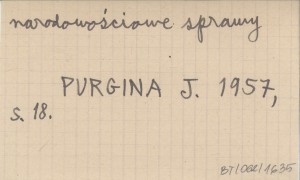 narodowościowe sprawy
PURGINA J. 1957,
s. 18.
BT/OGR/1635